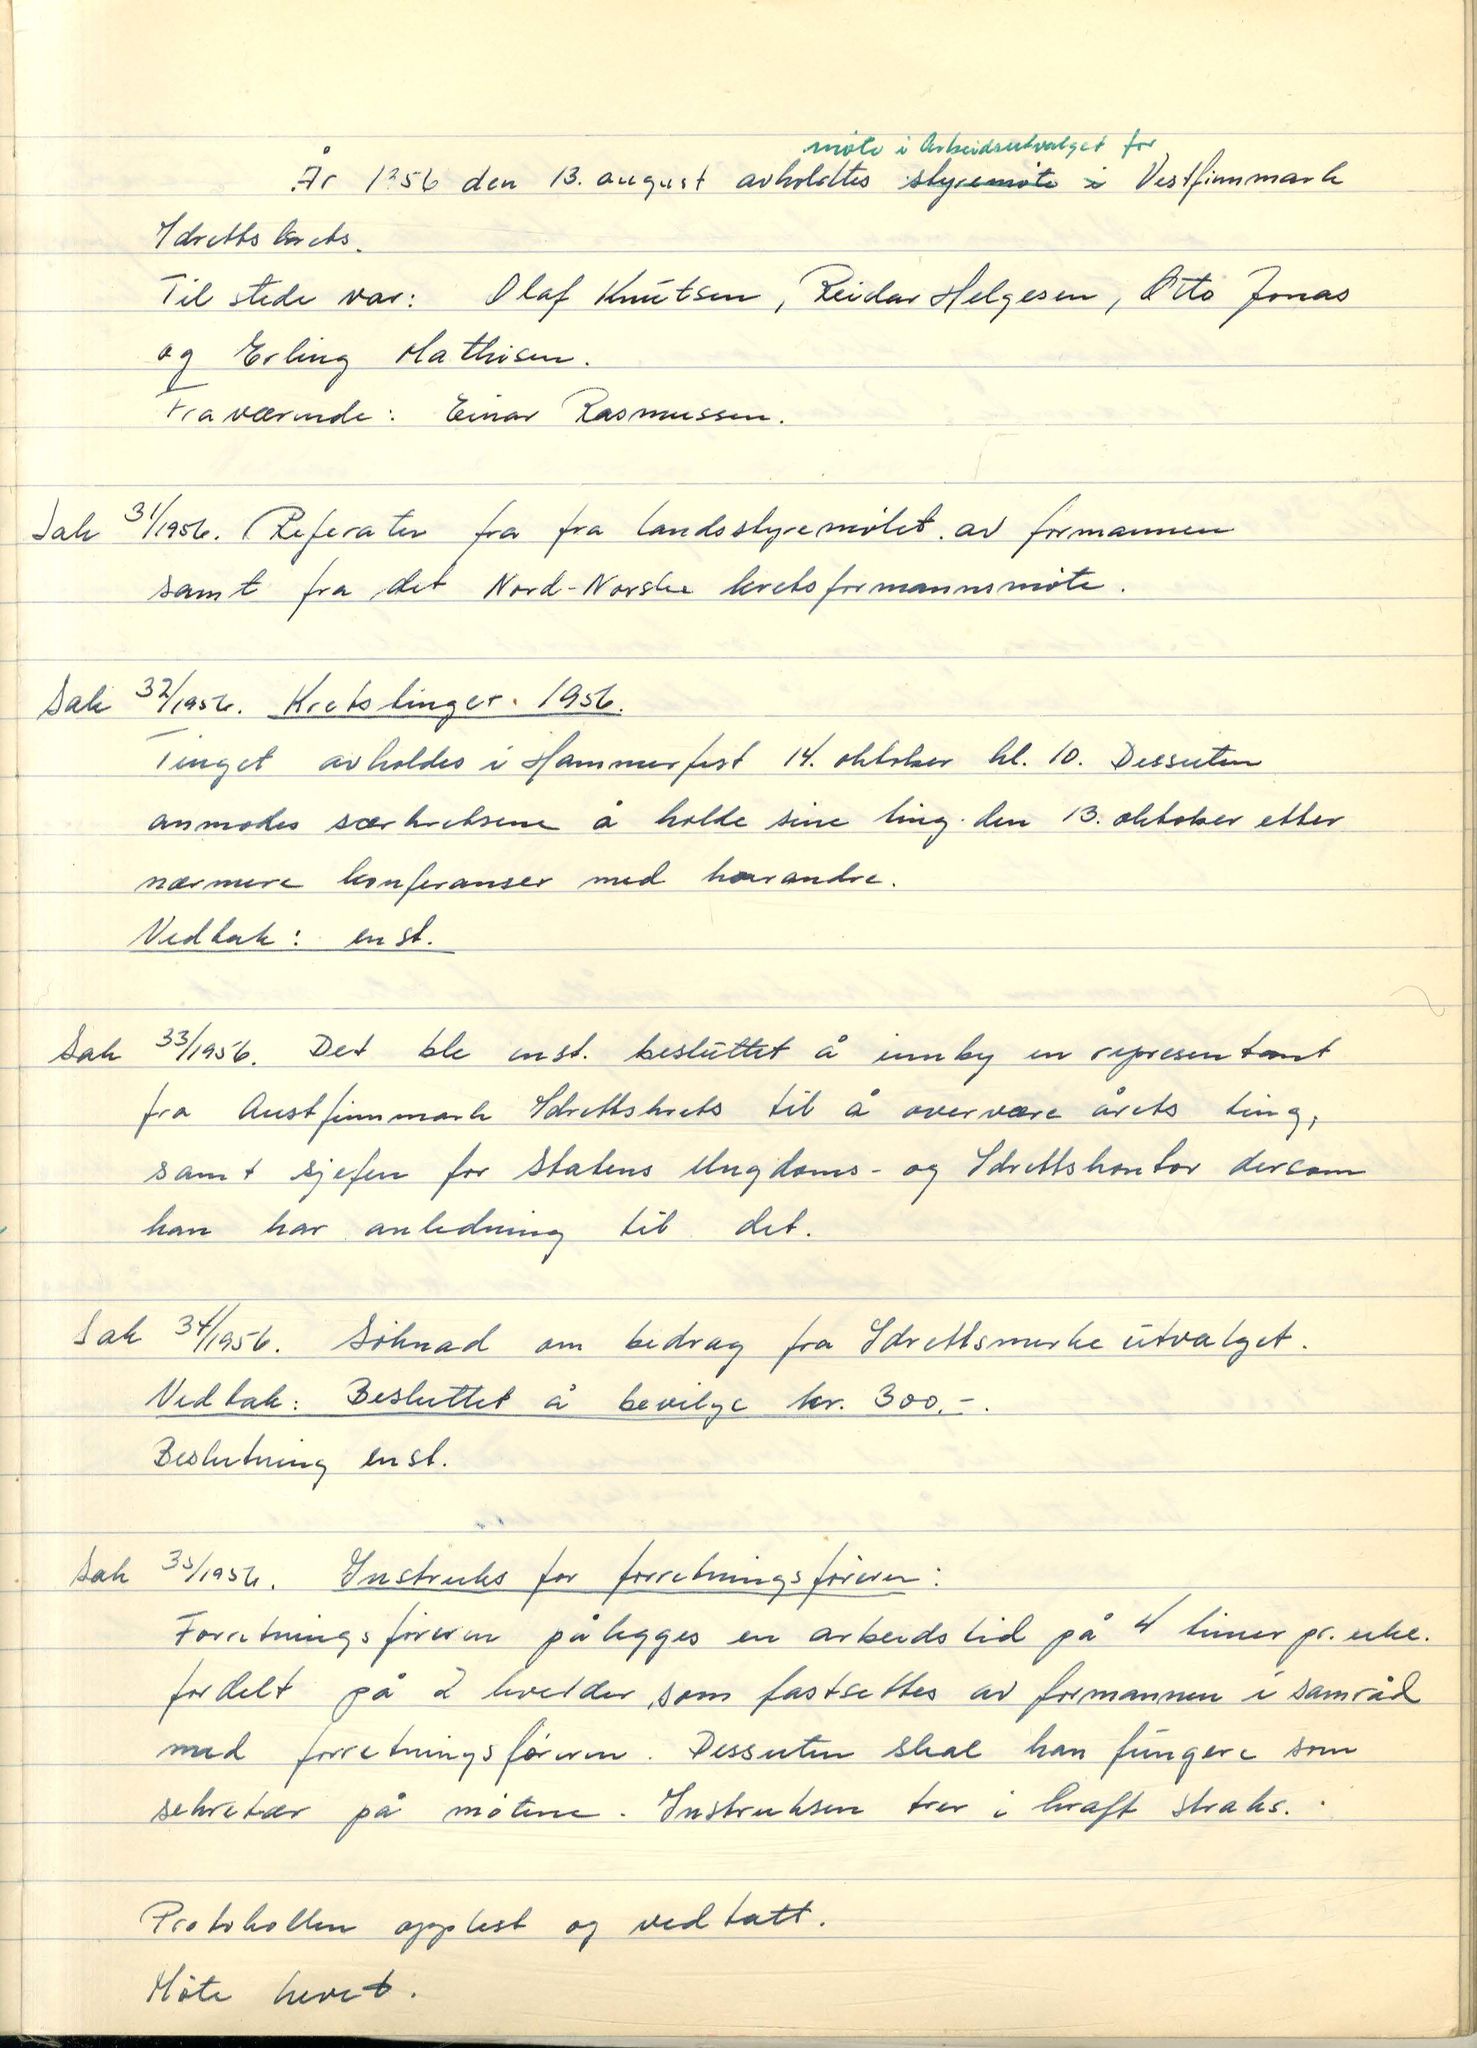 møte i Arbeidsutvalget for
År 1956 den 13. august avholdtes styremøte i Vestfinnmark
Idrettskrets.
Til stede var: Olaf Knutsen, Reidar Helgesen, Otto Jonas
og Erling Mathisen.
Fraværende: Einar Rasmussen.
Sak 31/1956. Referater fra fra landsstyremøtet av formannen
samt fra det Nord-Norske kretsformannsmøte.
Sak 32/1956. Kretstinget. 1956.
Tinget avholdes i Hammerfest 14. oktober kl. 10. Dessuten
anmodes særkretsene å holde sine ting den 13. oktober etter
nærmere konferanser med hverandre.
Vedtak: enst.
Sak 33/1956. Det ble enst. besluttet å innby en representant
fra Austfinnmark Idrettskrets til å overvære årets ting,
samt sjefen for Statens Ungdoms- og Idrettskontor dersom
han har anledning til det.
Sak 34/1956. Søknad om bedrag fra Idrettsmerke utvalget.
Vedtak: Besluttet å bevilge kr. 300.-.
Beslutning enst.
Sak 35/1956. Instruks for forretningsføreren:
Forretningsføreren pålegges en arbeidstid på 4 timer pr. uke.
fordelt på 2 kvelder, som fastsettes av formannen i samråd
med forretningsføreren. Dessuten skal han fungere som
sekretær på møtene. Instruksen trer i kraft straks.
Protokollen opplest og vedtatt.
Møte hevet.